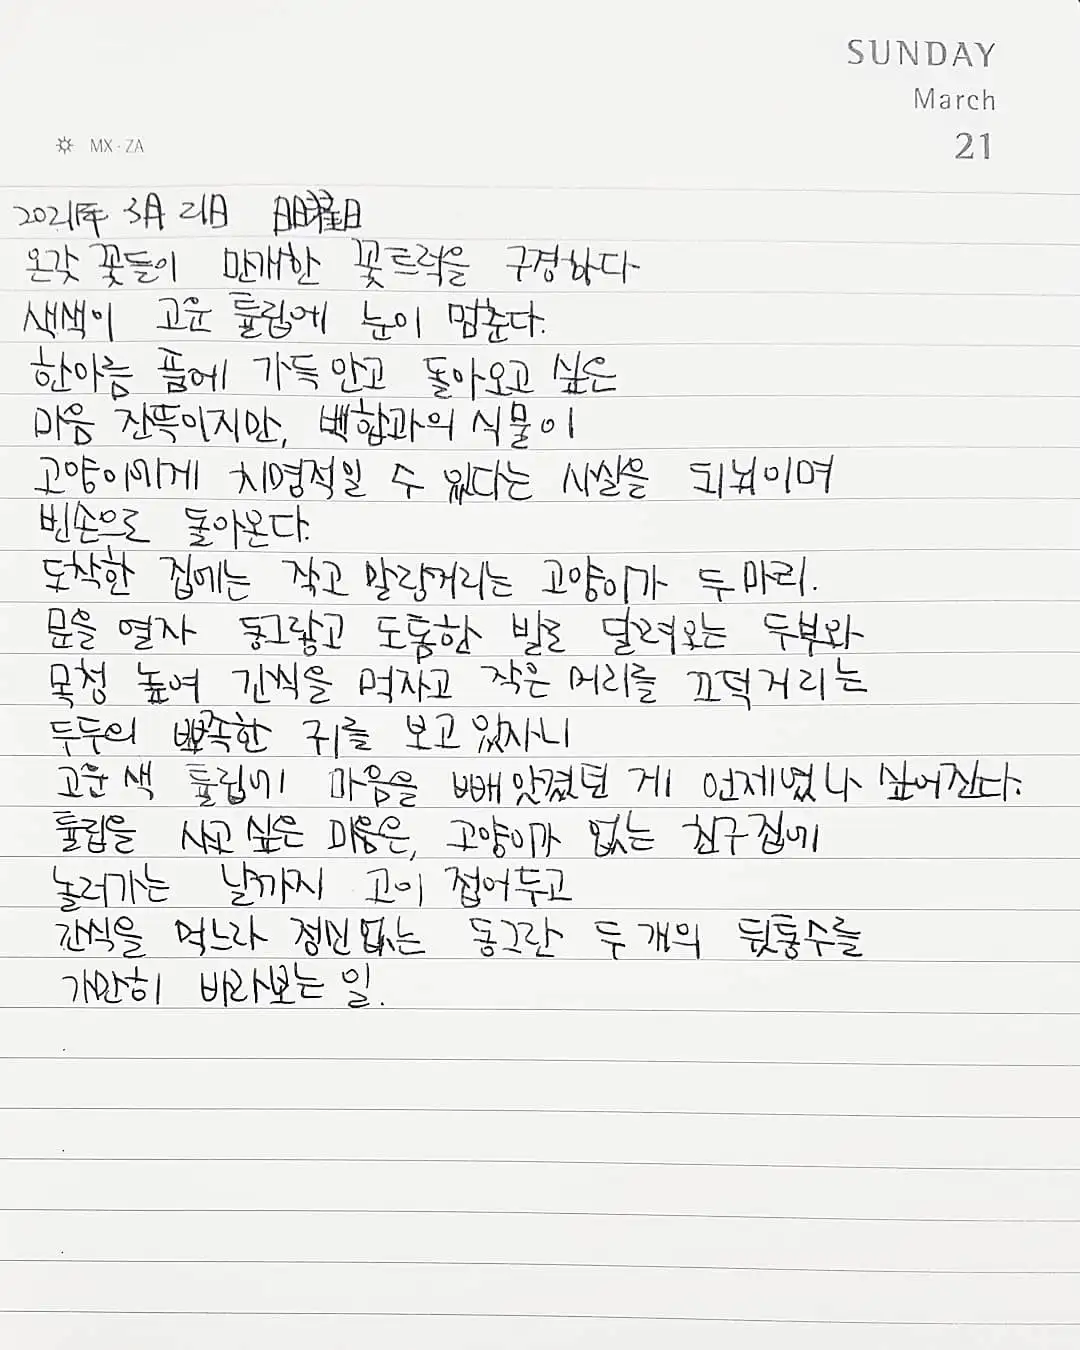 SUNDAY
March
21
MX · ZA
2021年 3月 21日 日曜日
온갖 꽃들이 만개한 꽃트럭을 구경하다
색색이 고운 튤립에 눈이 멈춘다.
한아름 품에 가득 안고 돌아오고 싶은
마음 잔뜩이지만, 백합과의 식물이
고양이에게 치명적일 수 있다는 사실을 되뇌이며
빈손으로 돌아온다.
도착한 집에는 작고 말랑거리는 고양이가 두 마리.
문을 열자 동그랗고 도톰한 발로 달려오는 두부와
목청 높여 간식을 먹자고 작은 머리를 끄덕거리는
두두의 뾰족한 귀를 보고 있자니
고운 색 튤립에 마음을 빼앗겼던 게 언제였나 싶어진다.
튤립을 사고 싶은 마음은, 고양이가 없는 친구집에
놀러가는 날까지 고이 접어두고
간식을 먹느라 정신없는 동그란 두 개의 뒷통수를
가만히 바라보는 일.